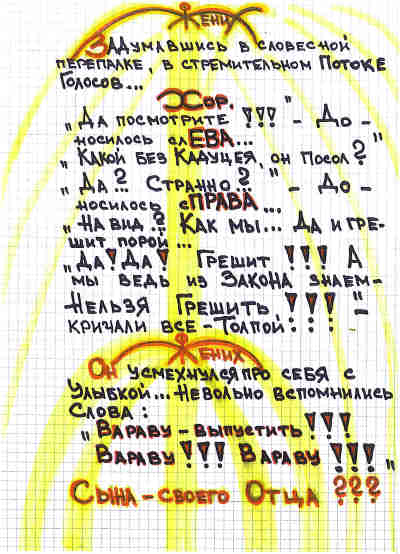 Жених
Задумавшись в словесной
перепалке, в стремительном Потоке
Голосов...
Хор.
„Да посмотрите !!!" – До-
носилось слЕВА...
„Какой без Кадуцея, он Посол?"
„Да..? Странно..?.." – До-
носилось сПРАВА...
„На вид..? Как мы... Да и гре-
шит порой...
„Да! Да! Грешит !!! А
мы ведь из Закона знаем –
Нельзя Грешить, !!!" –
кричали все – Толпой,
Жених
Он усмехнулся про себя с
Улыбкой... Невольно вспомнились
Слова:
„Вараву – выпустить !!!
Вараву !!! Вараву !!!"
Сына – своего Отца ???